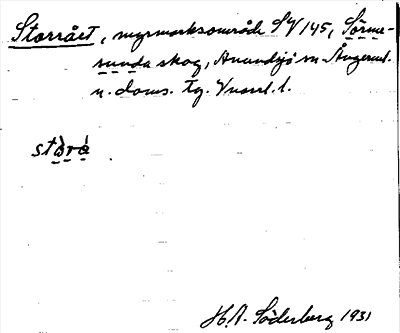 Storrået, myrmarksområde SV 145, Sörme-
sunda skog, Anundsjö sn Ångerml.
n. doms. tg. Vnorrl. l.
stòrá
H.A. Söderberg 1931